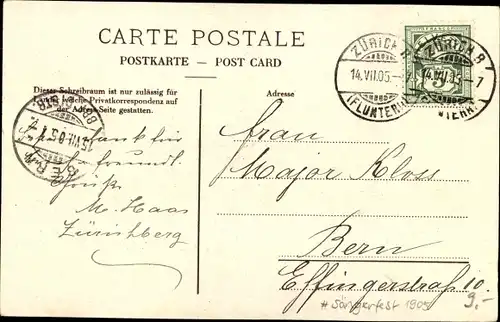 CARTE POSTALE
POSTKARTE — POST CARD
Dieser Schreibraum ist nur zulässig für
welche Privatkorrespondenz auf
der Adress-Seite gestattet.
Adresse
ZÜRICH
14.VII.05.–7
(FLUNTERN)
ZÜRICH 8
14.VII.05.–7
5
BERN
Dank für
freundl.
Grüße
M. Haas
Zürichberg
Frau
Major Kloss
Bern
Effingerstraße 10.
9.-
#Sängerfest 1905